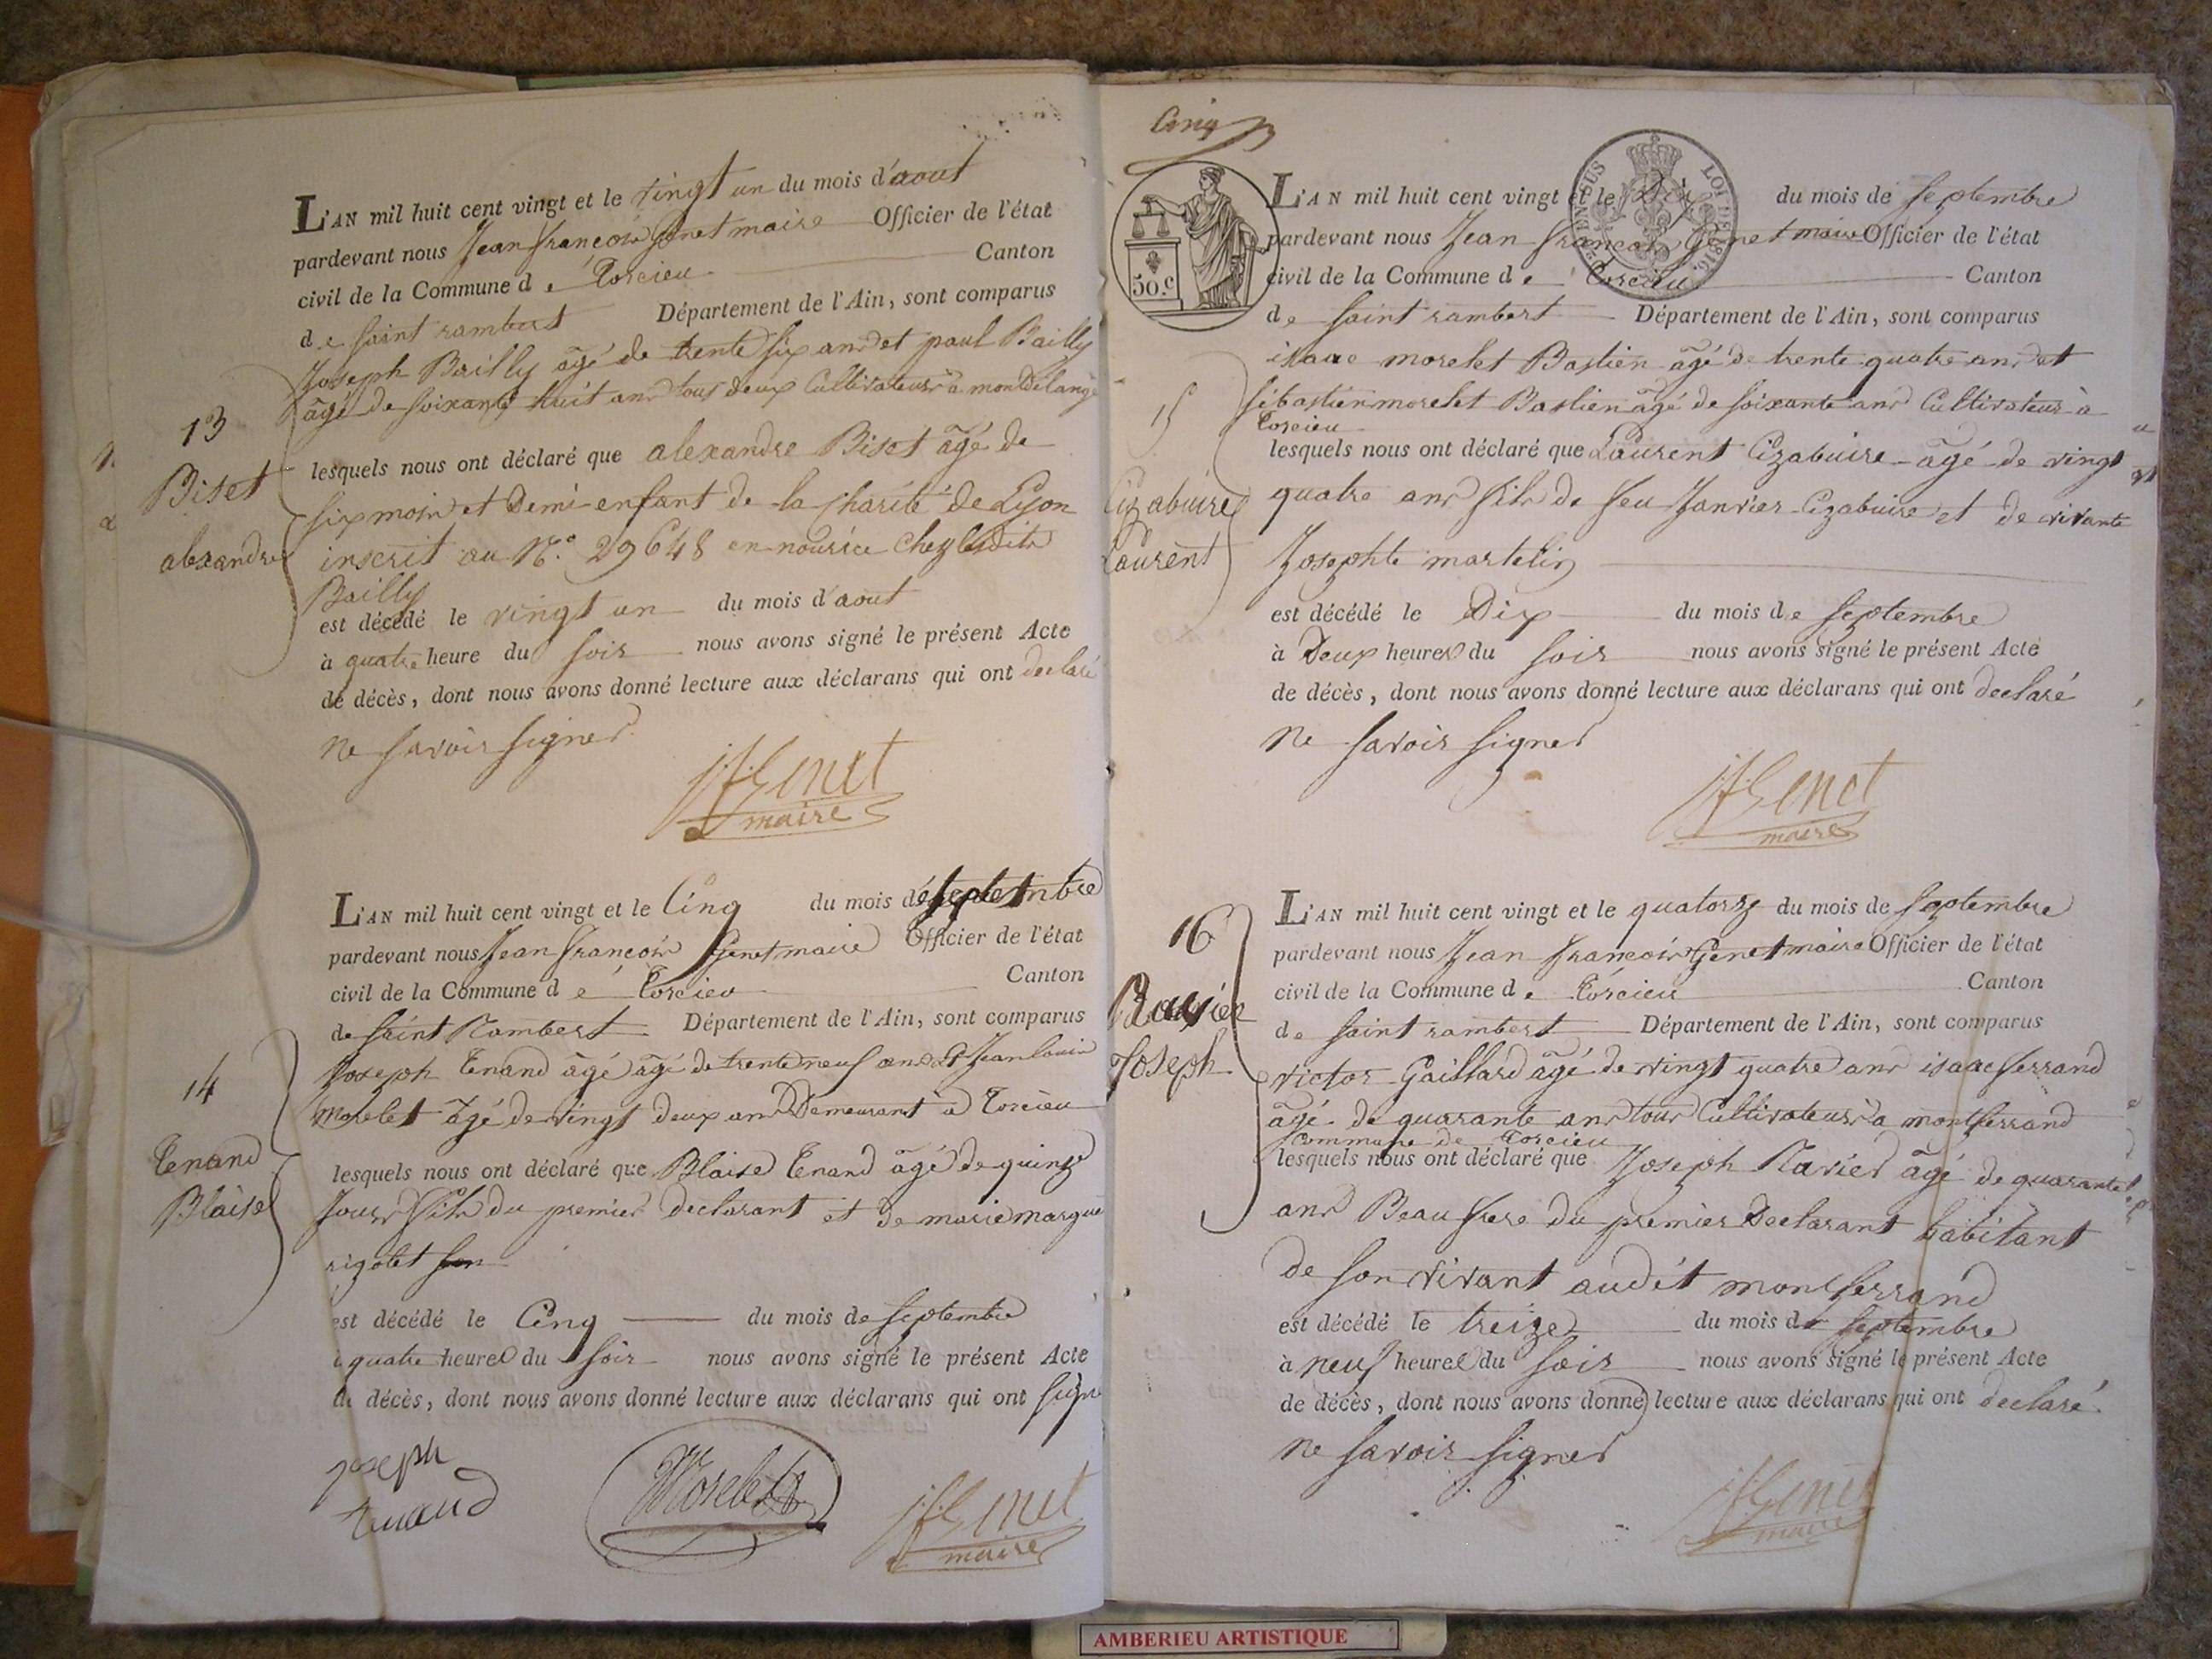 L'AN mil huit cent vingt et le vingt un du mois d'aout
pardevant nous Jean françois Genet maire Officier de l'état
civil de la Commune de Torcieu Canton
de saint rambert Département de l'Ain, sont comparus
Joseph Bailly âgé de trente six ans et paul Bailly
âgé de soixante huit ans tous deux Cultivateurs a montdelange
13
Biset
alexandre
lesquels nous ont déclaré que alexandre Biset âgé de
six mois et Demi enfant de la Charité de Lyon
inscrit au N.° 29648 en nourice chez lesdits
Bailly
est décédé le vingt un du mois d'aout
à quatre heure du soir nous avons signé le présent Acte
de décès, dont nous avons donné lecture aux déclarans qui ont declaré
ne savoir signer
Jf Genet
maire
L'AN mil huit cent vingt et le Cinq du mois de septembre
pardevant nous Jean françois Genet maire Officier de l'état
civil de la Commune de Torcieu Canton
de saint Rambert Département de l'Ain, sont comparus
Joseph Tenand âgé âgé de trente neuf ans et Jean louis
Morelet âgé de vingt deux ans Demeurant a Torcieu
14
Tenand
Blaise
lesquels nous ont déclaré que Blaise Tenand âgé de quinze
Jours fils du premier declarant et de marie margue
rigolet
est décédé le Cinq du mois de septembre
à quatre heures du soir nous avons signé le présent Acte
de décès, dont nous avons donné lecture aux déclarans qui ont signé
joseph
tenand
Morelet
Jf Genet
maire
Cinq
50.c
LOI DE 1816.
L'AN mil huit cent vingt et le Dix du mois de septembre
pardevant nous Jean françois Genet maire Officier de l'état
civil de la Commune de Torcieu Canton
de saint rambert Département de l'Ain, sont comparus
isaac morelet Bastien âgé de trente quatre ans et
sébastien morelet Bastien âgé de soixante ans Cultivateurs à
Torcieu
15
Cizabuire
Laurent
lesquels nous ont déclaré que Laurent Cizabuire âgé de vingt
quatre ans fils de feu Janvier Cizabuire et de vivante
Josephte martelin
est décédé le Dix du mois de septembre
à Deux heures du soir nous avons signé le présent Acte
de décès, dont nous avons donné lecture aux déclarans qui ont declaré
ne savoir signer
Jf Genet
maire
L'AN mil huit cent vingt et le quatorze du mois de septembre
pardevant nous Jean françois Genet maire Officier de l'état
civil de la Commune de Torcieu Canton
de saint rambert Département de l'Ain, sont comparus
victor Gaillard âgé de vingt quatre ans isaac ferrand
âgé de quarante ans tous Cultivateurs a montferrand
commune de Torcieu
16
Joseph
lesquels nous ont déclaré que Joseph Ravier âgé de quarante
ans Beau frere du premier Declarant habitant
de son vivant audit montferrand
est décédé le treize du mois de septembre
à neuf heures du soir nous avons signé le présent Acte
de décès, dont nous avons donné lecture aux déclarans qui ont declaré
ne savoir signer
Jf Genet
maire
AMBERIEU ARTISTIQUE